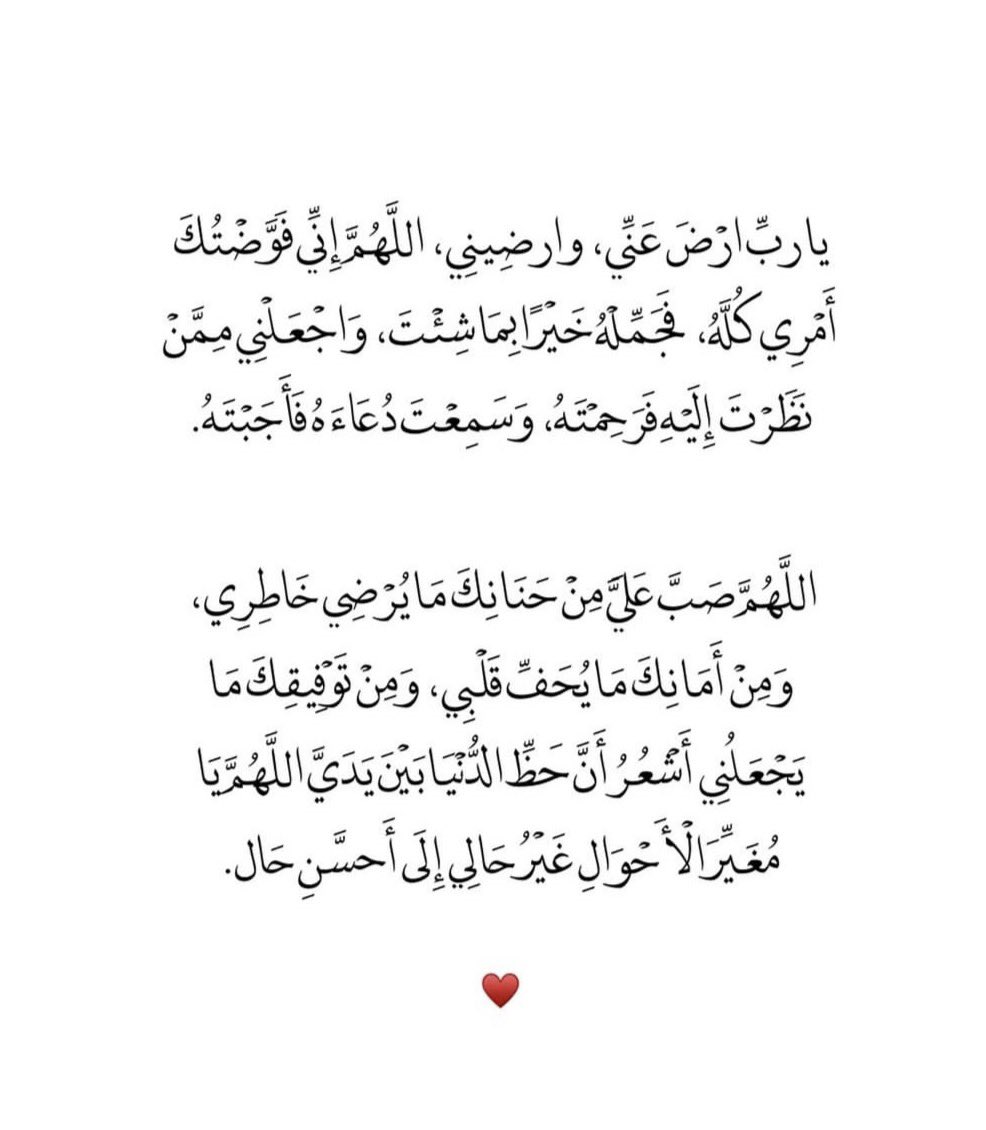 يا ربِّ ارْضَ عَنِّي، وارضِيني، اللَّهُمَّ إِنِّي فَوَّضْتُكَ
أَمْرِي كُلَّهُ، فَجَمِّلْهُ خَيْرًا بِمَا شِئْتَ، وَاجْعَلْنِي مِمَّنْ
نَظَرْتَ إِلَيْهِ فَرَحِمْتَهُ، وَسَمِعْتَ دُعَاءَهُ فَأَجَبْتَهُ.
اللَّهُمَّ صَبَّ عَلَيَّ مِنْ حَنَانِكَ مَا يُرْضِي خَاطِرِي،
وَمِنْ أَمَانِكَ مَا يُحَفِّ قَلْبِي، وَمِنْ تَوْفِيقِكَ مَا
يَجْعَلُنِي أَشْعُرُ أَنَّ حَظِّ الدُّنْيَا بَيْنَ يَدَيَّ اللَّهُمَّ يَا
مُغَيِّرَ الْأَحْوَالِ غَيْرُ حَالِي إِلَى أَحسَّنِ حَال.
♥️